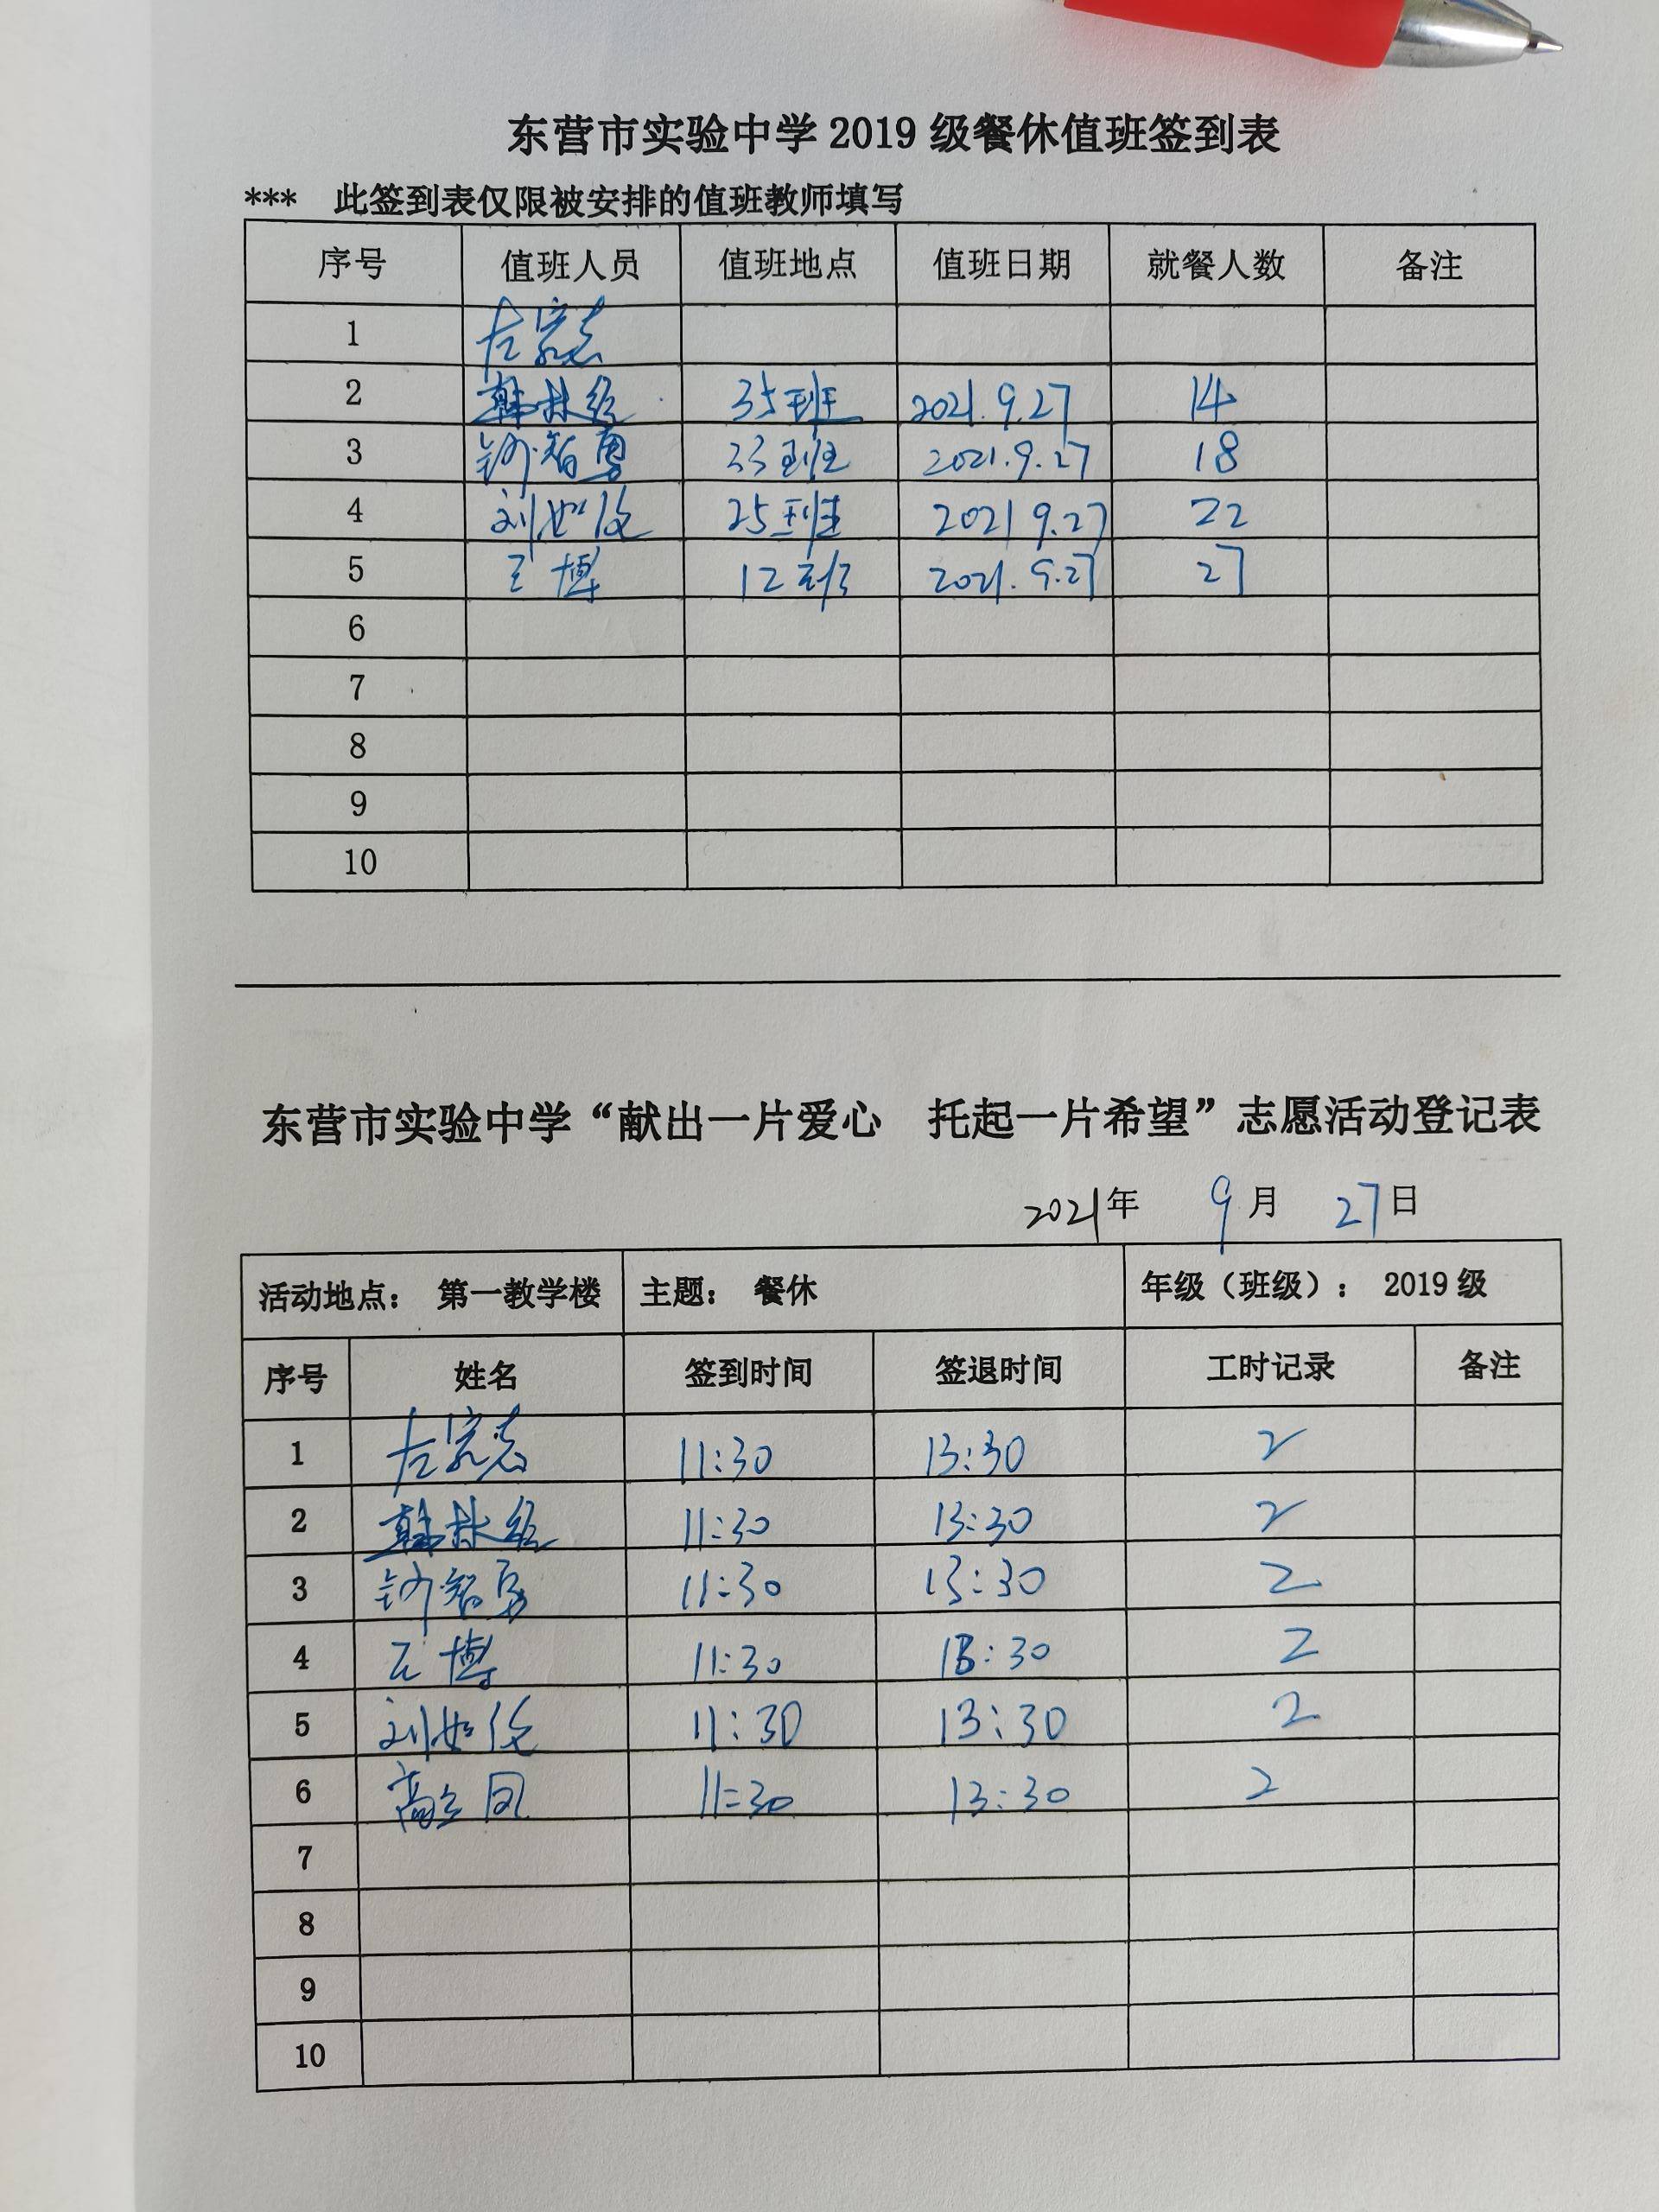 东营市实验中学 2019 级餐休值班签到表
*** 此签到表仅限被安排的值班教师填写
序号 值班人员 值班地点 值班日期 就餐人数 备注
1
2 35班 2021.9.27 14
3 智勇 33班 2021.9.27 18
4 刘如俊 25班 2021 9.27 22
5 王博 12班 2021.9.27 27
6
7
8
9
10
东营市实验中学“献出一片爱心 托起一片希望”志愿活动登记表
2021年 9月 27日
活动地点： 第一教学楼 主题： 餐休 年级（班级）： 2019 级
序号 姓名 签到时间 签退时间 工时记录 备注
1 11:30 13:30 2
2 11:30 13:30 2
3 智勇 11:30 13:30 2
4 王博 11:30 13:30 2
5 刘如俊 11:30 13:30 2
6 高 11:30 13:30 2
7
8
9
10